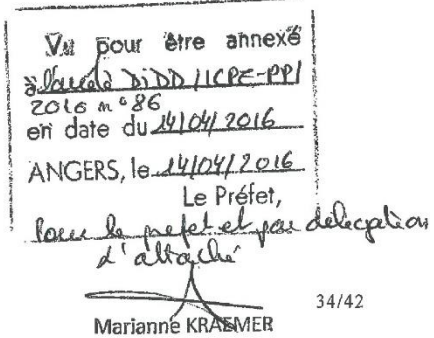 Vu pour être annexé
à l'arrêté DIDD/ICPE-PP/
2016 n° 86
en date du 14/04/2016
ANGERS, le 14/04/2016
Le Préfet,
Pour le préfet et par délégation
L'attaché
Marianne KRAEMER
34/42